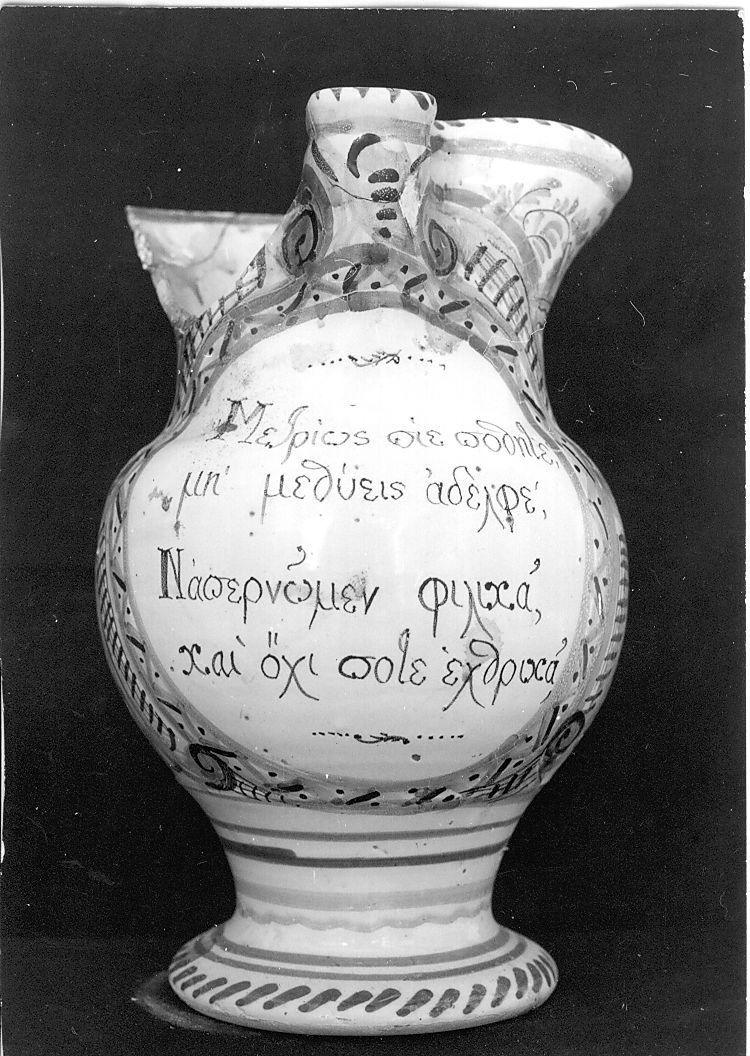 Μετρίως πίε ποθητέ,
μη' μεθύεις ἀδελφέ,
Νἀπερνῶμεν φιλικά,
καὶ ὄχι ποτε ἐχθρικά